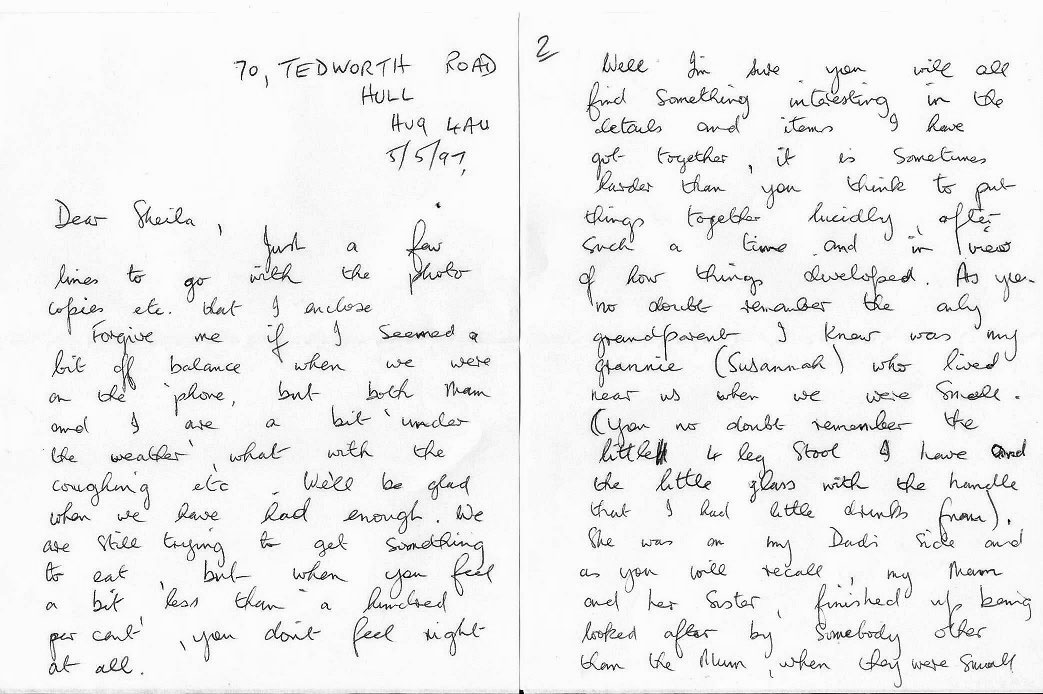 70, TEDWORTH ROAD
HULL
HU9 4AU
5/5/97,
Dear Sheila,
Just a few
lines to go with the photo
copies etc. that I enclose
Forgive me if I seemed a
bit off balance when we were
on the 'phone, but both Mam
and I are a bit 'under
the weather' what with the
coughing etc. We'll be glad
when we have had enough. We
are still trying to get something
to eat, but when you feel
a bit 'less than a hundred
per cent', you don't feel right
at all.
2
Well I'm sure you will all
find something interesting in the
details and items I have
got together, it is sometimes
harder than you think to put
things together lucidly, after
such a time and in view
of how things developed. As you
no doubt remember the only
grandparent I knew was my
grannie (Susannah) who lived
near us when we were small.
(you no doubt remember the
little 4 leg stool I have and
the little glass with the handle
that I had little drinks from).
She was on my Dad's side and
as you will recall, my Mam
and her sister, finished up being
looked after by somebody other
than the Mum, when they were small